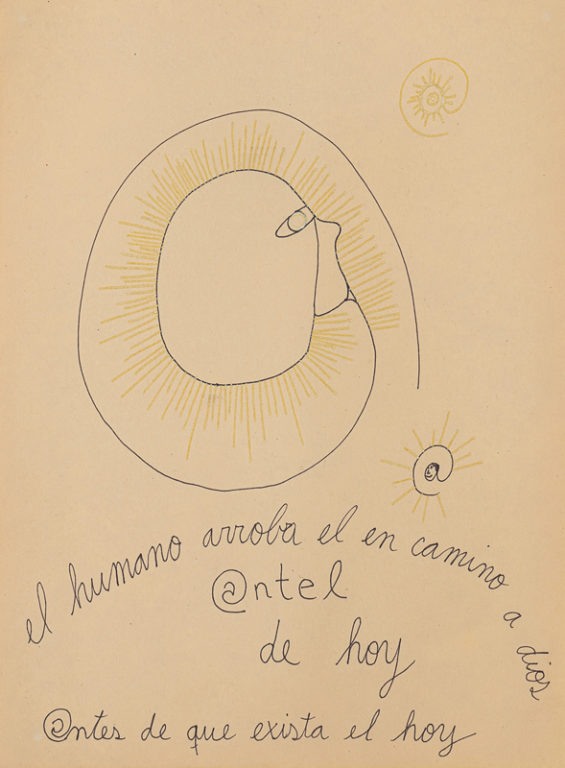 el humano arroba el en camino a dios
@ntel
de hoy
@ntes de que exista el hoy